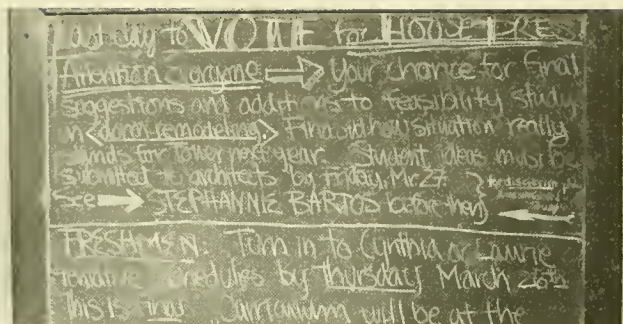 Last day to VOTE for HOUSE PRES
Attention Everyone → Your chance for final
suggestions and additions to feasibility study
on <dorm remodeling> Find out how situation really
stands for tower next year. Student ideas must be
submitted to architects by Friday, Mr. 27.
See → STEPHANNIE BARTOS before then
FRESHMEN: Turn in to Cynthia or Laurie
tentative schedules by Thursday March 26th
This is final. Curriculum will be at the